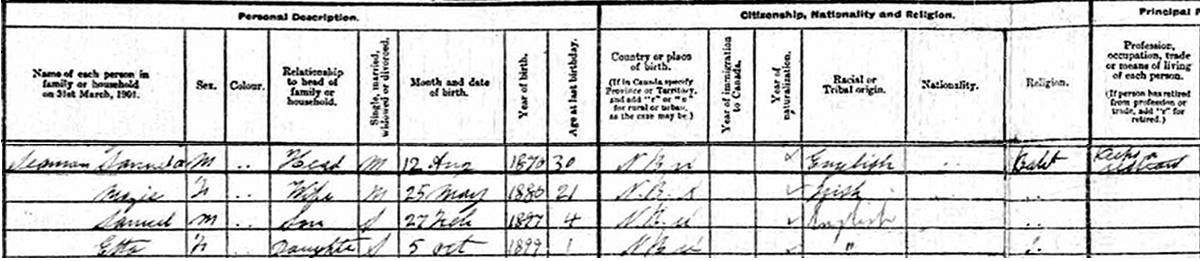 Personal Description. Citizenship, Nationality and Religion. Principal
Name of each person in family or household on 31st March, 1901. Sex. Colour. Relationship to head of family or household. Single, married, widowed or divorced. Month and date of birth. Year of birth. Age at last birthday. Country or place of birth. (If in Canada specify Province or Territory, and add "r" or "u" for rural or urban, as the case may be.) Year of immigration to Canada. Year of naturalization. Racial or Tribal origin. Nationality. Religion. Profession, occupation, trade or means of living of each person. (If person has retired from profession or trade, add "r" for retired.)
Seaman Samuel M .. Head M 12 Aug 1870 30 N.B. English .. Babt Keeps a
F .. Wife M 25 May 1880 21 N.B. Irish .. ..
Samuel M .. Son S 27 Feb 1897 4 N.B. English ..
Etta F .. Daughter S 5 Oct 1899 1 N.B. "